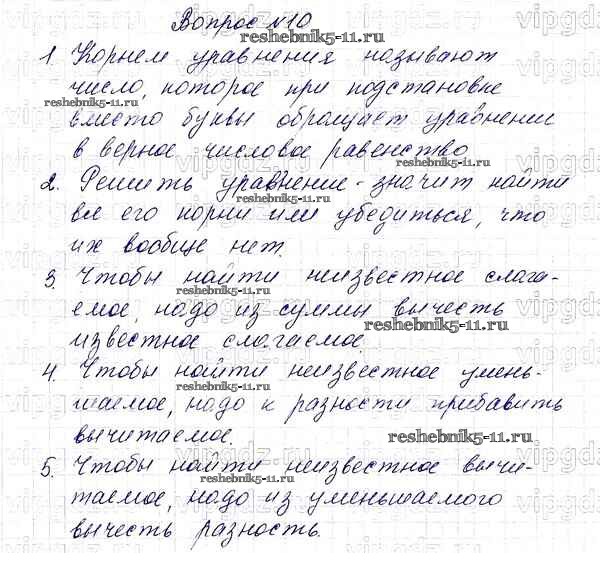 Вопрос №10
1. Корнем уравнения называют
число, которое при подстановке
вместо буквы обращает уравнении
в верное числовое равенство
2. Решить уравнение - значит найти
все его корни или убедиться, что
их вообще нет.
3. Чтобы найти неизвестное слага-
емое, надо из суммы вычесть
известное слагаемое.
4. Чтобы найти неизвестное умень-
шаемое, надо к разности прибавить
вычитаемое.
5. Чтобы найти неизвестное вычи-
таемое, надо из уменьшаемого
вычесть разность.
reshebnik5-11.ru
reshebnik5-11.ru
reshebnik5-11.ru
reshebnik5-11.ru
reshebnik5-11.ru
reshebnik5-11.ru
reshebnik5-11.ru
reshebnik5-11.ru
reshebnik5-11.ru